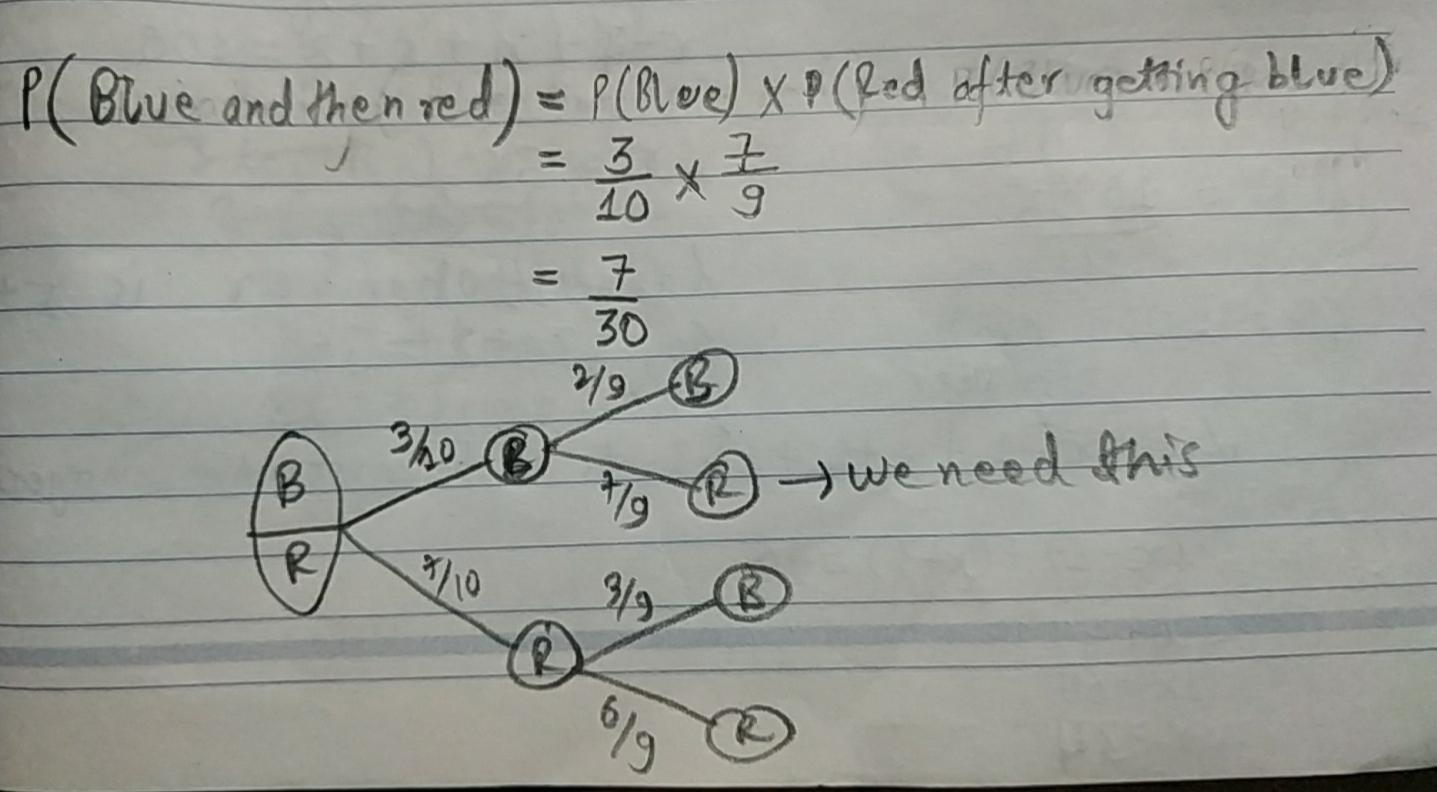 P(Blue and then red) = P(Blue) × P(Red after getting blue)
= 3/10 × 7/9
= 7/30
2/9 B
3/10 B
B
7/9 R → we need this
R
7/10
3/9 B
R
6/9 R